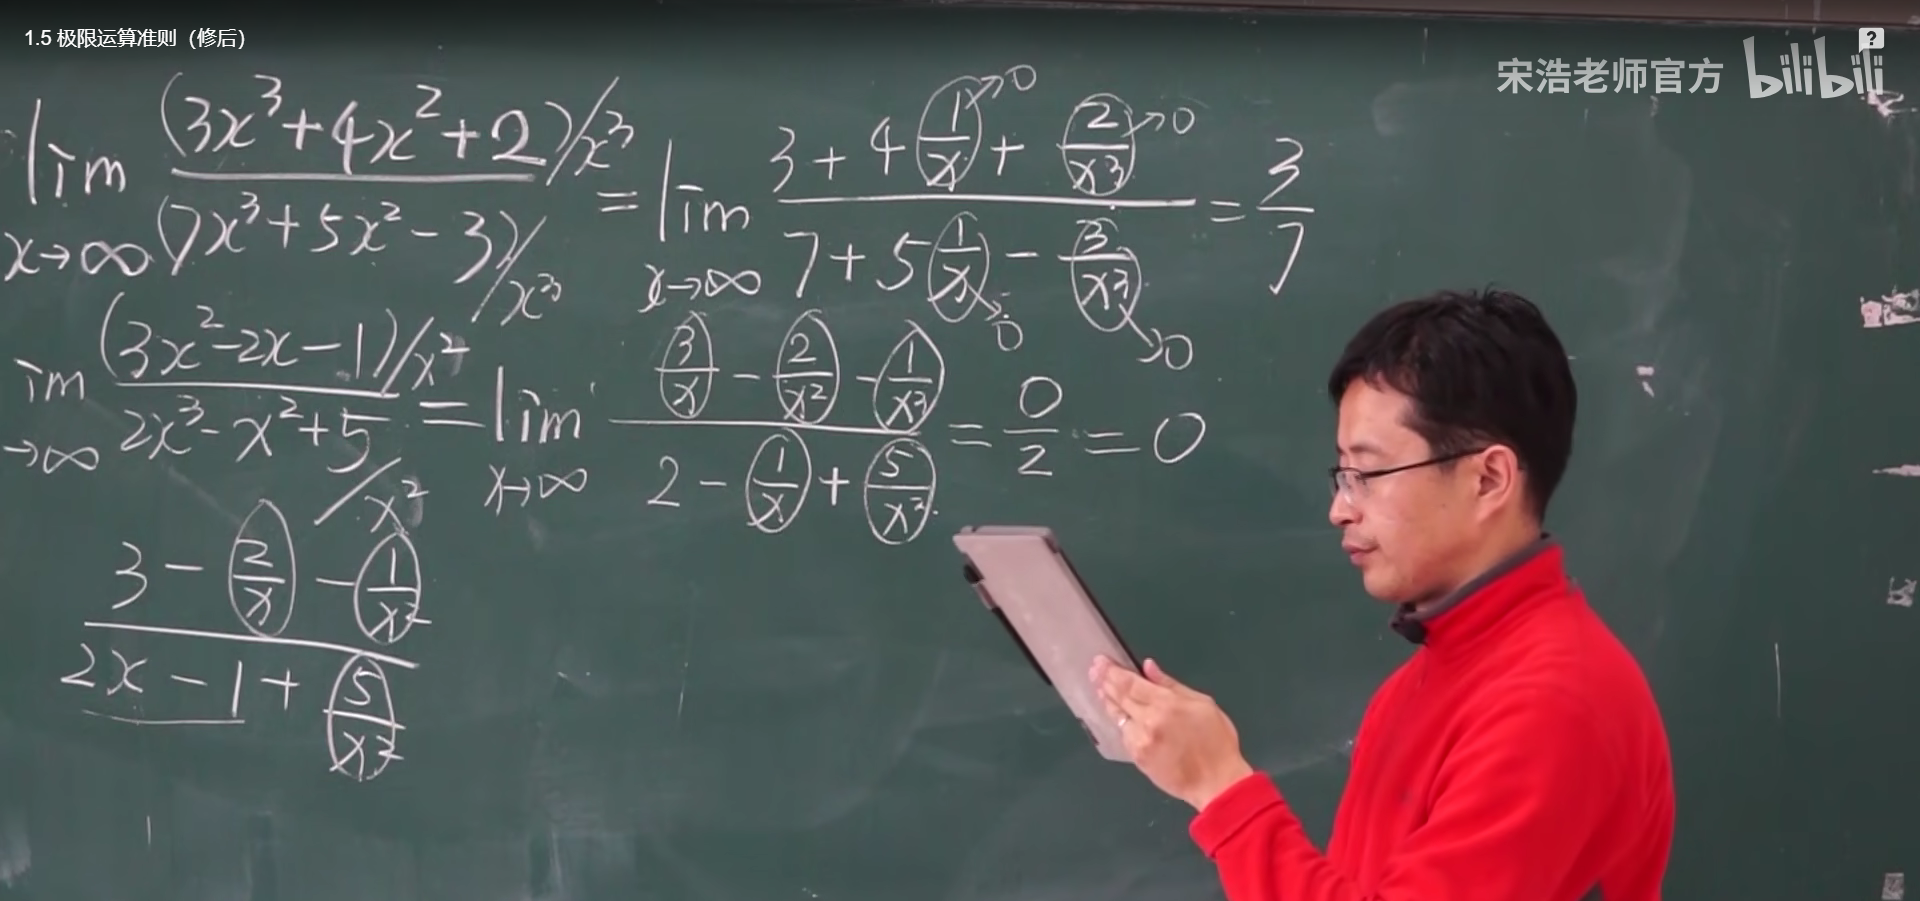 1.5 极限运算准则（修后）
宋浩老师官方 bilibili
?
lim x→∞ (3x³+4x²+2)/x³ / (7x³+5x²-3)/x³ = lim x→∞ 3+4 1/x + 2/x³ / 7+5 1/x - 3/x³ = 3/7
→0 →0 →0 →0
im →∞ (3x²-2x-1)/x² / 2x³-x²+5 /x² = lim x→∞ 3/x - 2/x² - 1/x³ / 2 - 1/x + 5/x³ = 0/2 = 0
3 - 2/x - 1/x²
2x - 1 + 5/x²